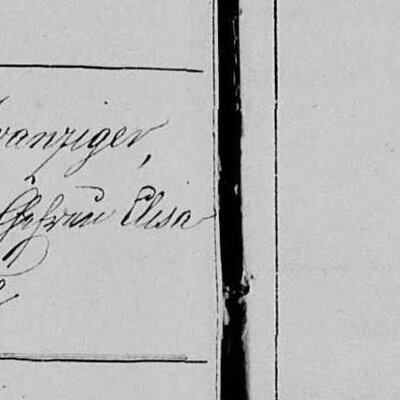 wanziger,
Ehefrau Elisa